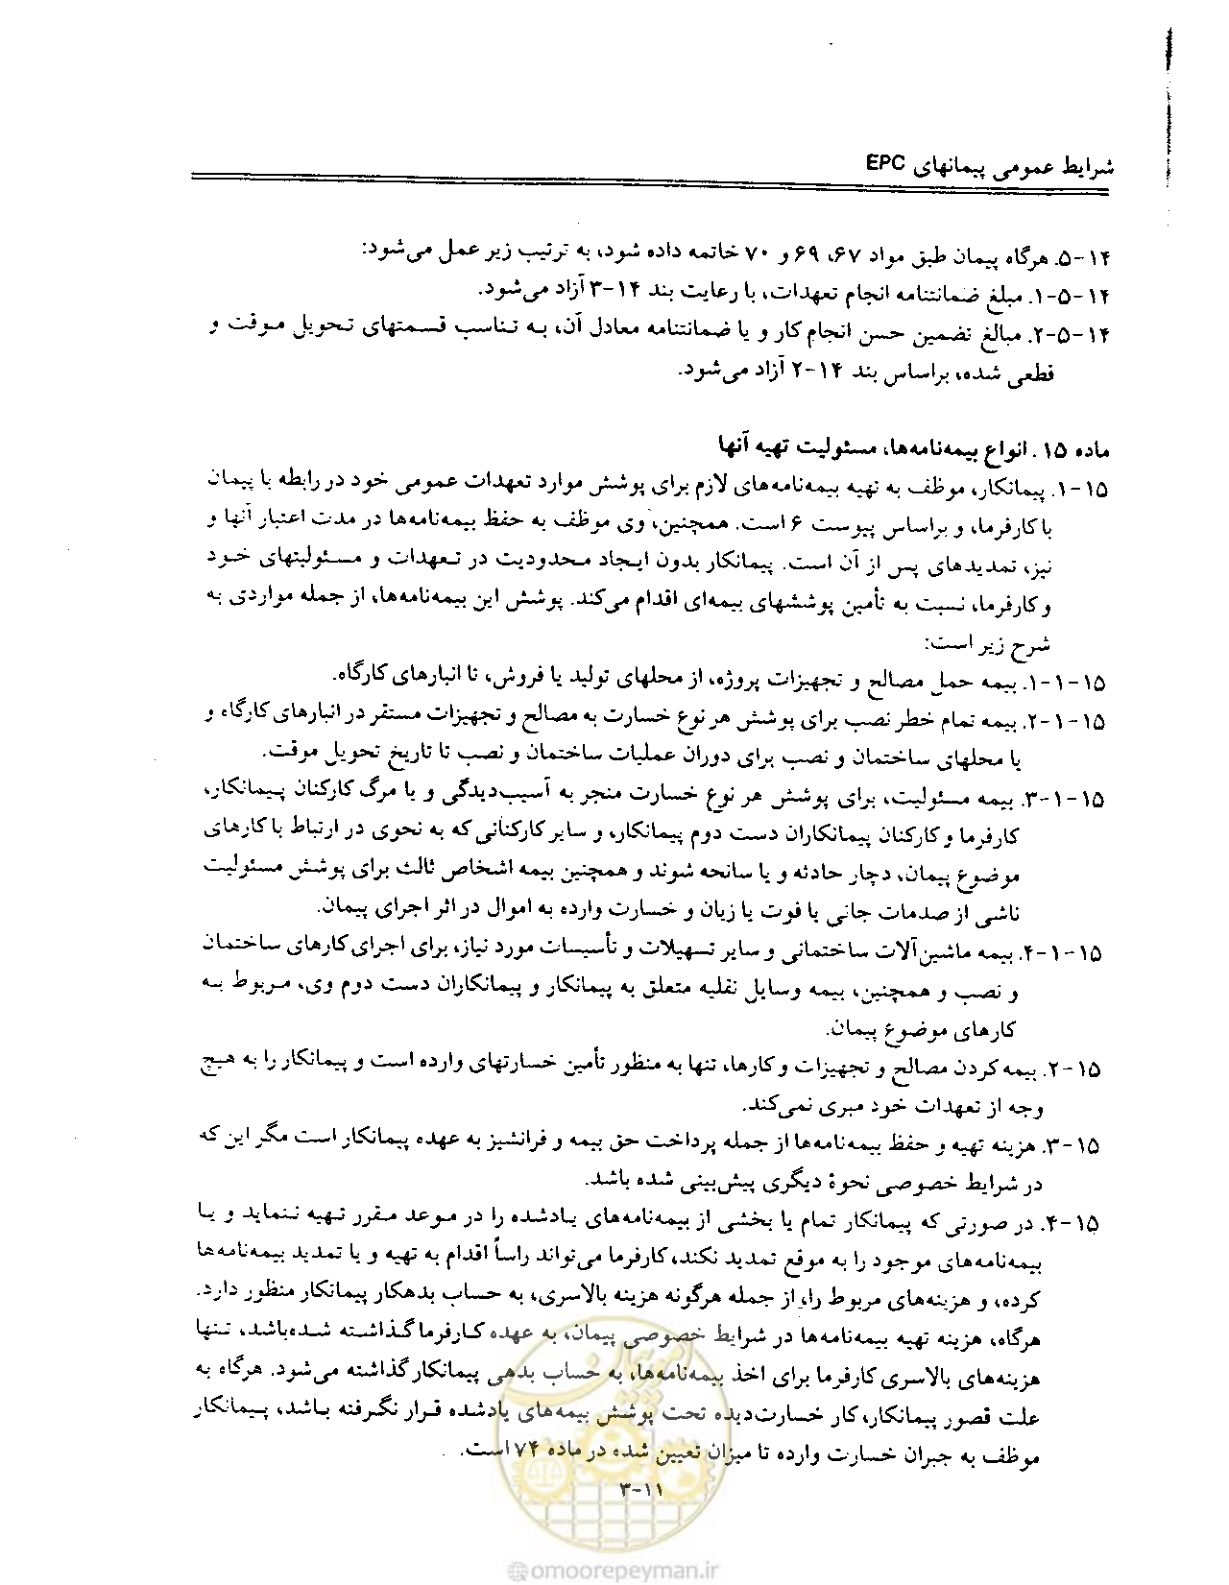 شرایط عمومی پیمانهای EPC
۱۴-۵. هرگاه پیمان طبق مواد ۶۷، ۶۹ و ۷۰ خاتمه داده شود، به ترتیب زیر عمل می‌شود:
۱۴-۵-۱. مبلغ ضمانتنامه انجام تعهدات، با رعایت بند ۱۴-۳ آزاد می‌شود.
۱۴-۵-۲. مبالغ تضمین حسن انجام کار و یا ضمانتنامه معادل آن، به تناسب قسمتهای تحویل موقت و
قطعی شده، براساس بند ۱۴-۲ آزاد می‌شود.
ماده ۱۵ . انواع بیمه‌نامه‌ها، مسئولیت تهیه آنها
۱۵-۱. پیمانکار، موظف به تهیه بیمه‌نامه‌های لازم برای پوشش موارد تعهدات عمومی خود در رابطه با پیمان
با کارفرما، و براساس پیوست ۶ است. همچنین، وی موظف به حفظ بیمه‌نامه‌ها در مدت اعتبار آنها و
نیز، تمدیدهای پس از آن است. پیمانکار بدون ایجاد محدودیت در تعهدات و مسئولیتهای خود
و کارفرما، نسبت به تأمین پوششهای بیمه‌ای اقدام می‌کند. پوشش این بیمه‌نامه‌ها، از جمله مواردی به
شرح زیر است:
۱۵-۱-۱. بیمه حمل مصالح و تجهیزات پروژه، از محلهای تولید یا فروش، تا انبارهای کارگاه.
۱۵-۱-۲. بیمه تمام خطر نصب برای پوشش هر نوع خسارت به مصالح و تجهیزات مستقر در انبارهای کارگاه و
یا محلهای ساختمان و نصب برای دوران عملیات ساختمان و نصب تا تاریخ تحویل موقت.
۱۵-۱-۳. بیمه مسئولیت، برای پوشش هر نوع خسارت منجر به آسیب‌دیدگی و یا مرگ کارکنان پیمانکار،
کارفرما و کارکنان پیمانکاران دست دوم پیمانکار، و سایر کارکنانی که به نحوی در ارتباط با کارهای
موضوع پیمان، دچار حادثه و یا سانحه شوند و همچنین بیمه اشخاص ثالث برای پوشش مسئولیت
ناشی از صدمات جانی یا فوت یا زیان و خسارت وارده به اموال در اثر اجرای پیمان.
۱۵-۱-۴. بیمه ماشین‌آلات ساختمانی و سایر تسهیلات و تأسیسات مورد نیاز، برای اجرای کارهای ساختمان
و نصب و همچنین، بیمه وسایل نقلیه متعلق به پیمانکار و پیمانکاران دست دوم وی، مربوط به
کارهای موضوع پیمان.
۱۵-۲. بیمه کردن مصالح و تجهیزات و کارها، تنها به منظور تأمین خسارتهای وارده است و پیمانکار را به هیچ
وجه از تعهدات خود مبری نمی‌کند.
۱۵-۳. هزینه تهیه و حفظ بیمه‌نامه‌ها از جمله پرداخت حق بیمه و فرانشیز به عهده پیمانکار است مگر این که
در شرایط خصوصی نحوهٔ دیگری پیش‌بینی شده باشد.
۱۵-۴. در صورتی که پیمانکار تمام یا بخشی از بیمه‌نامه‌های یادشده را در موعد مقرر تهیه ننماید و یا
بیمه‌نامه‌های موجود را به موقع تمدید نکند، کارفرما می‌تواند رأساً اقدام به تهیه و یا تمدید بیمه‌نامه‌ها
کرده، و هزینه‌های مربوط را، از جمله هرگونه هزینه بالاسری، به حساب بدهکار پیمانکار منظور دارد.
هرگاه، هزینه تهیه بیمه‌نامه‌ها در شرایط خصوصی پیمان، به عهده کارفرما گذاشته شده‌باشد، تنها
هزینه‌های بالاسری کارفرما برای اخذ بیمه‌نامه‌ها، به حساب بدهی پیمانکار گذاشته می‌شود. هرگاه به
علت قصور پیمانکار، کار خسارت‌دیده تحت پوشش بیمه‌های یادشده قرار نگرفته باشد، پیمانکار
موظف به جبران خسارت وارده تا میزان تعیین شده در ماده ۷۴ است.
۳-۱۱
@omoorepeyman.ir